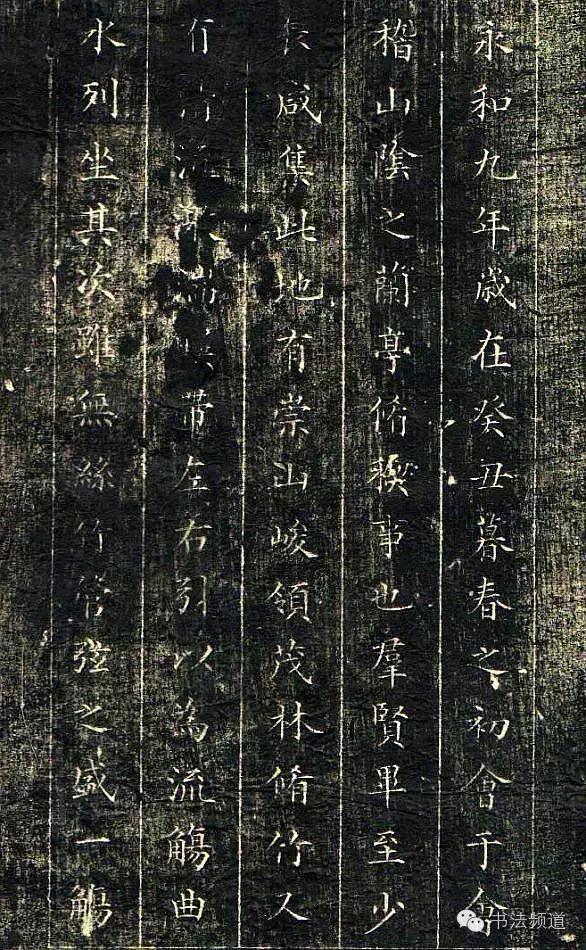 永和九年歲在癸丑暮春之初會于會
稽山陰之蘭亭脩稧事也羣賢畢至少
長咸集此地有崇山峻領茂林脩竹又
有清流激湍暎帶左右引以為流觴曲
水列坐其次雖無絲竹管弦之盛一觴
书法频道